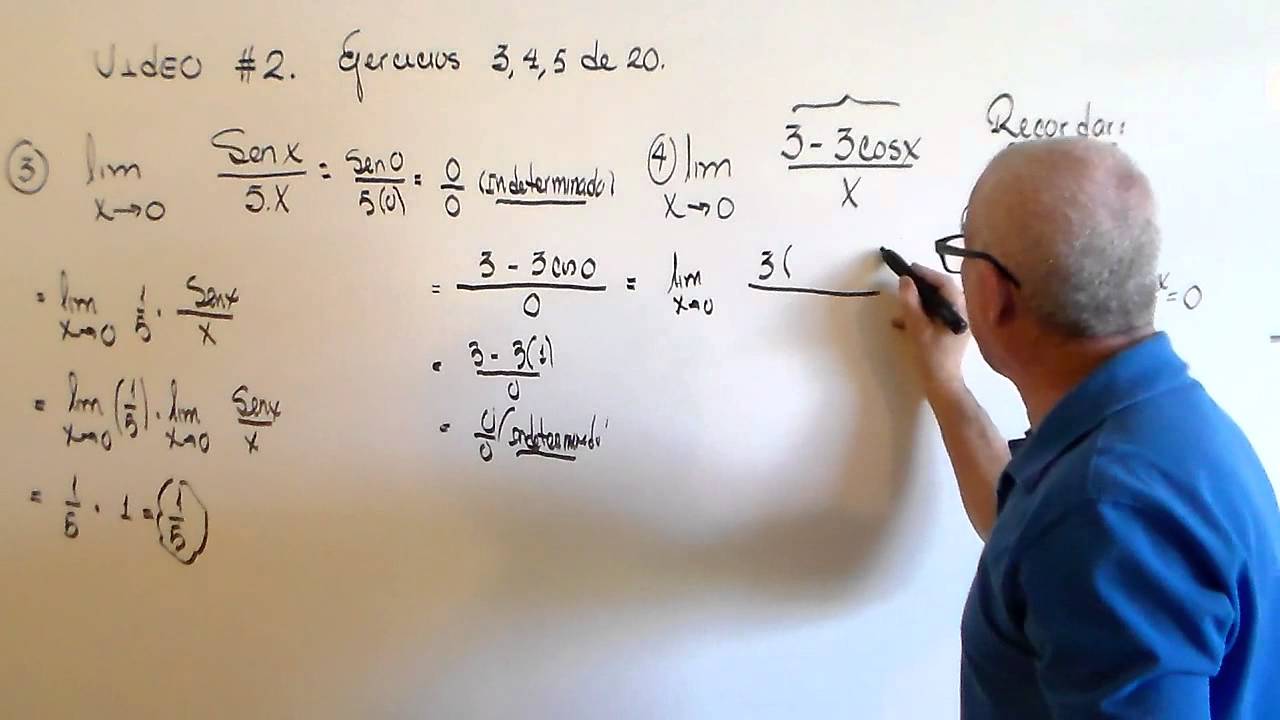 VIDEO #2. Ejercicios 3, 4, 5 de 20.
③ lim x→0 Senx/5.X = Sen0/5(0) = 0/0 (Indeterminado)
= lim x→0 1/5 . Senx/x
= lim x→0 (1/5) . lim x→0 Senx/x
= 1/5 . 1 = 1/5
④ lim x→0 3 - 3cosx/x
= 3 - 3cos0/0 = lim x→0 3(
= 3 - 3(1)/0
= 0/0 (Indeterminado)
Recordar:
x = 0